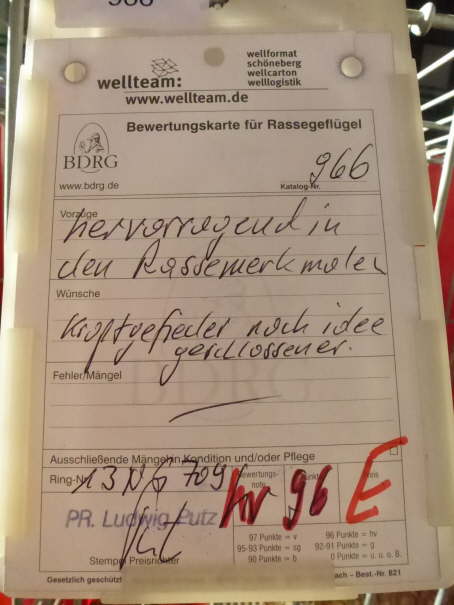 966
wellteam:
wellformat
schöneberg
wellcarton
welllogistik
www.wellteam.de
Bewertungskarte für Rassegeflügel
BDRG
www.bdrg.de
Katalog-Nr.
966
Vorzüge
hervorragend in
den Rassemerkmalen
Wünsche
Kropfgefieder noch idee
geschlossener.
Fehler/Mängel
BDRG
Ausschließende Mängel in Kondition und/oder Pflege
Ring-Nr.
13 N 709
Bewertungs-
note
hv
Punkte
96
Preis
E
PR. Ludwig Putz
97 Punkte = v
96 Punkte = hv
95-93 Punkte = sg
92-91 Punkte = g
90 Punkte = b
0 Punkte = u. o. B.
Stempel Preisrichter
Gesetzlich geschützt
ach – Best.-Nr. 821